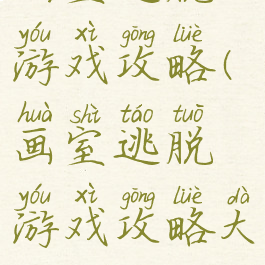 yóu xì gōng lüè
游戏攻略(
huà shì táo tuō
画室逃脱
yóu xì gōng lüè dà
游戏攻略大